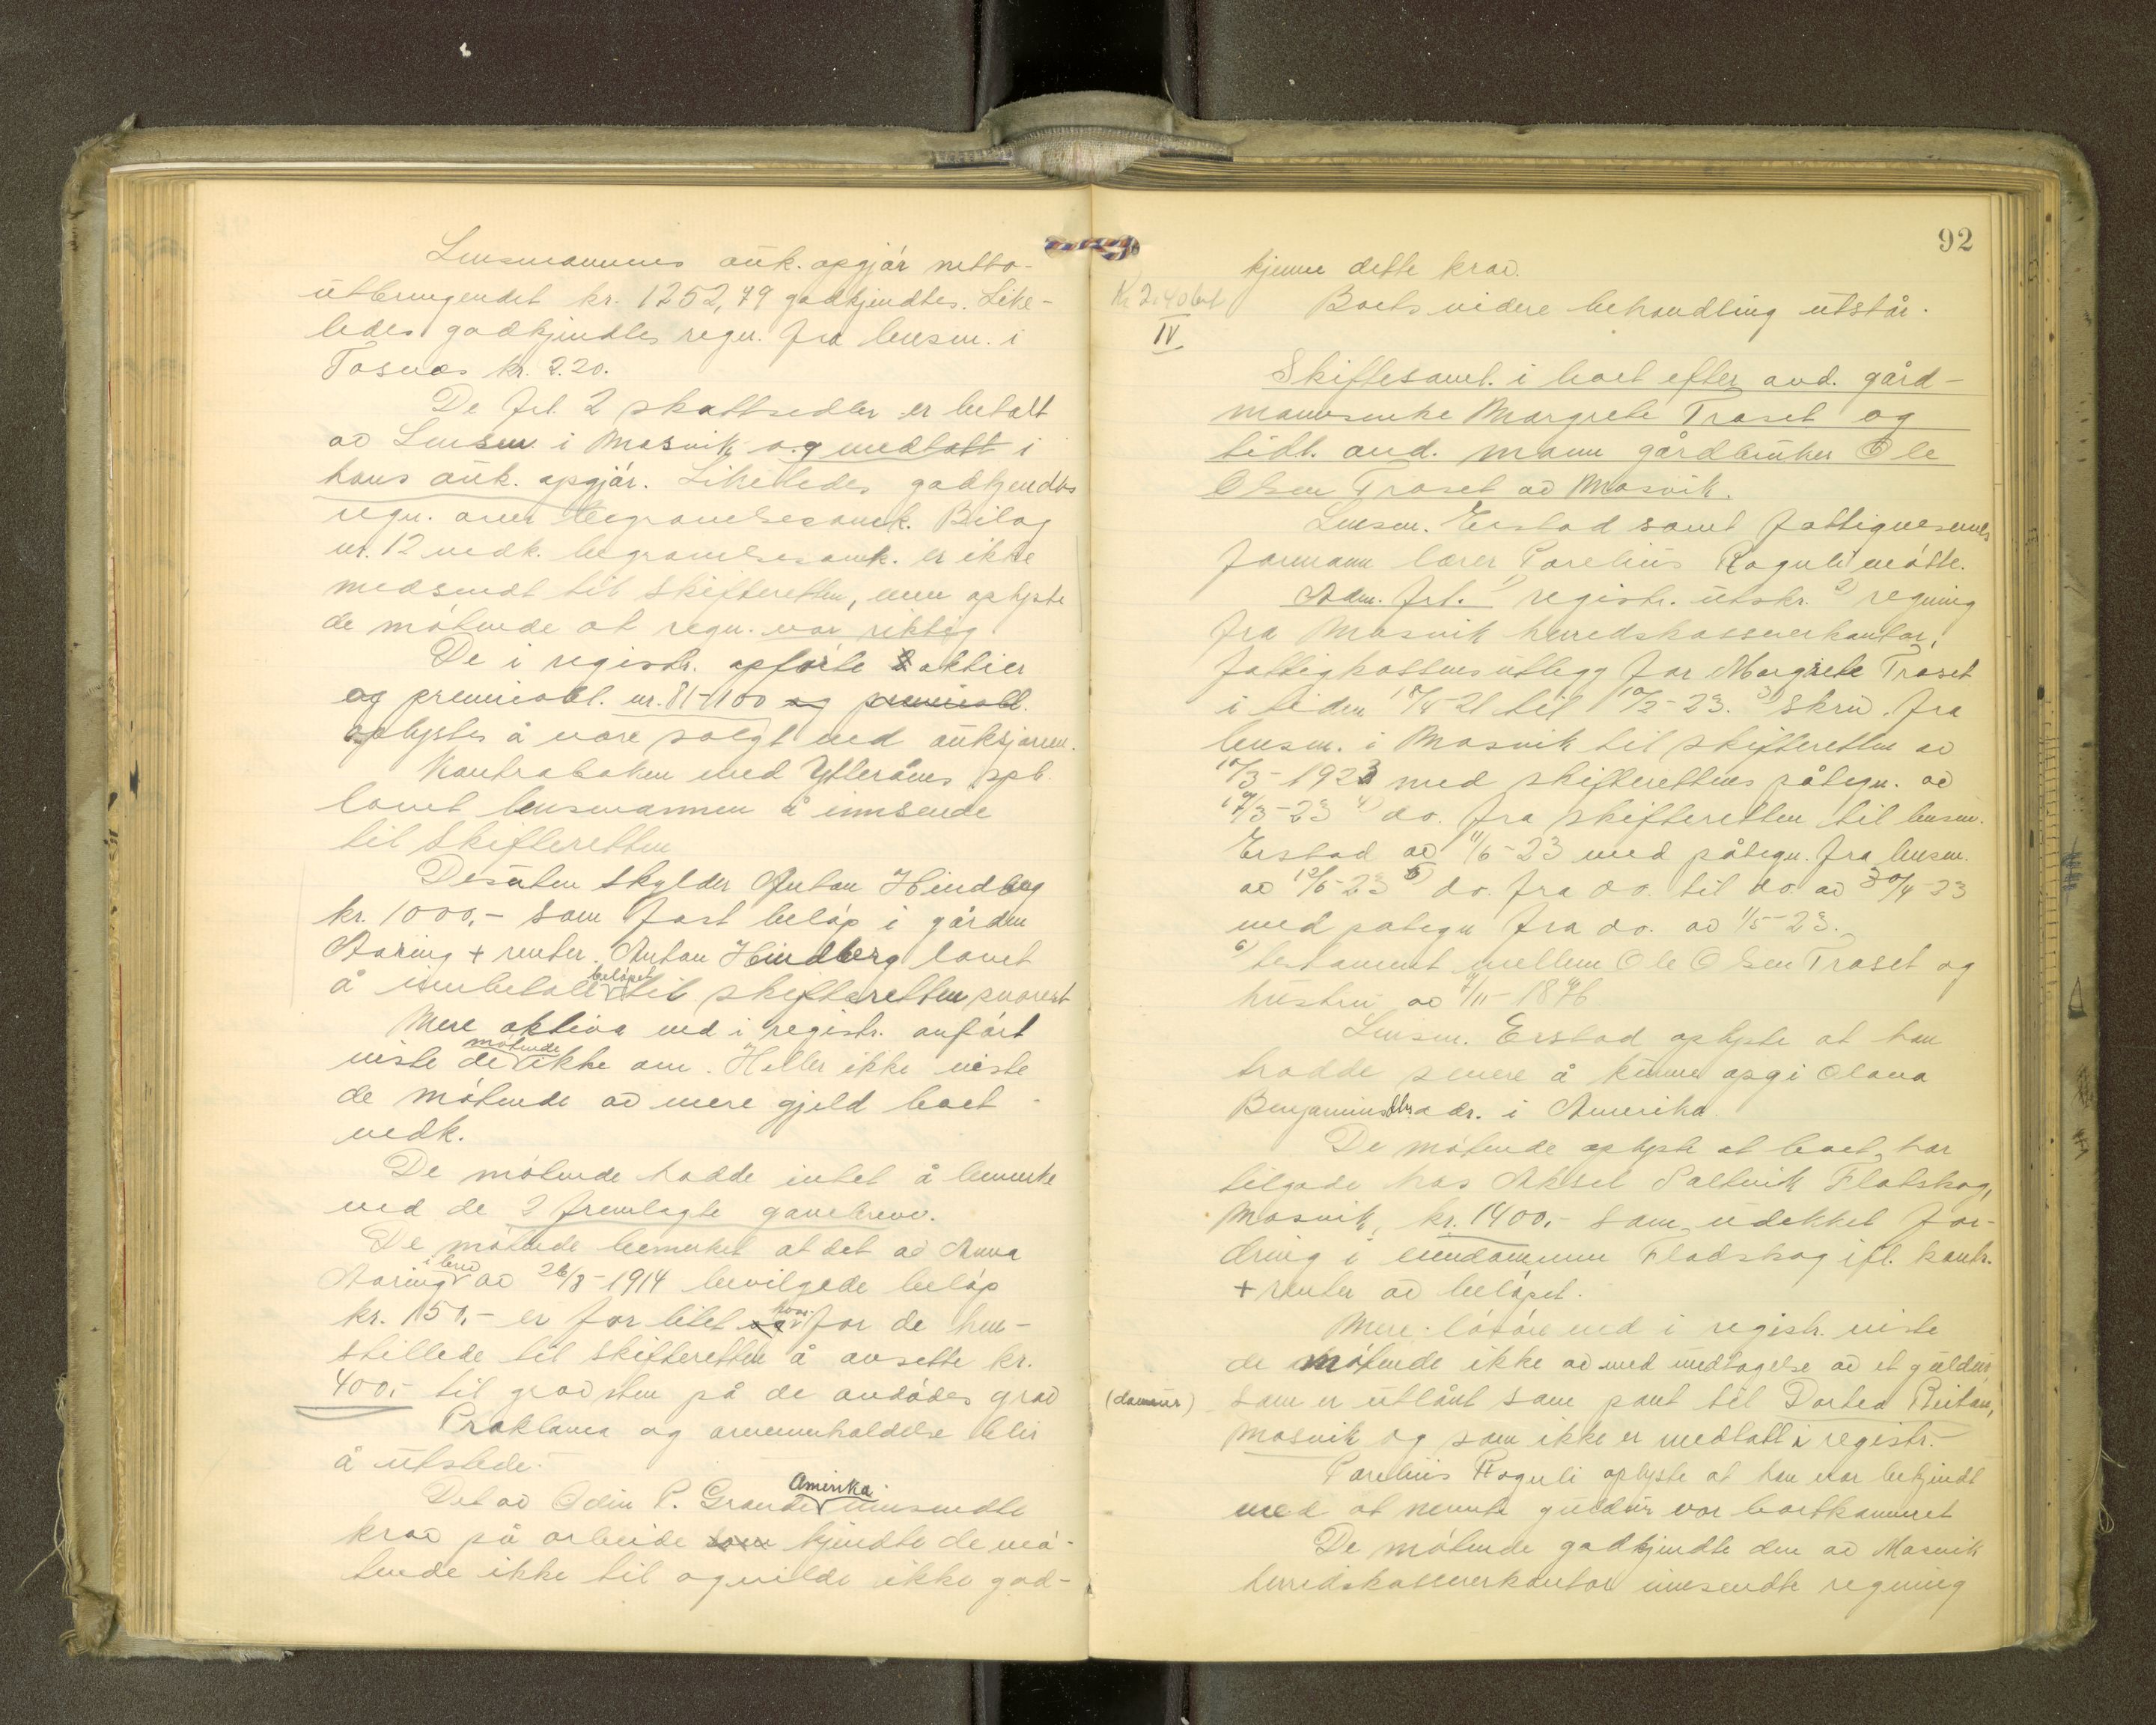 Lensmannens auk. opgjør netto-
utbringendet kr. 1252,79 godkjendtes. Like-
ledes godkjendtes regn. fra lensm. i
Fosnes kr. 2.20.
De frl. 2 skattsedler er betalt
av Lensm. i Mosvik og medtatt i
hans auk. opgjør. Likeledes godkjendtes
regn. over begravelsesomk. Bilag
nr. 12 vedk. begravelsesomk. er ikke
medsendt til skifteretten, men oplyste
de møtende at regn. var riktig.
De i registr. opførte aktier
og premieobl. nr. 81-1100 og premieobl.
oplystes å være solgt ved auksjonen.
Kontraboken med Ytterøens spb.
lovet lensmannen å innsende
til Skifteretten
Desuten skylder Anton Hindberg
kr. 1000,- som fast beløp i gården
Aaring + renter. Anton Hindberg lovet
å innbetale beløpet til skifteretten snarest
Mere aktiva end i registr. anført
viste de møtende ikke om. Heller ikke viste
de møtende av mere gjeld boet
vedk.
De møtende hadde intet å bemerke
ved de 2 fremlagte gavebrev.
De møtende bemerket at det av Anna
Aaring i brev av 26/8-1914 bevilgede beløp
kr. 150,- er for litet hvorfor de hen-
stillede til skifteretten å avsette kr.
400,- til gravsten på de avdødes grav
Proklama og arveinnkaldelse blir
å utstede.
Det av Odin P. Grande Amerika innsendte
krav på arbeide som kjendte de mø-
tende ikke til og vilde ikke god-
92
kjenne dette krav.
Kr 2.40 bet
Boets videre behandling utstår.
IV
Skiftesaml. i boet efter avd. gård-
mannsenke Margrete Traset og
tidl. avd. mann gårdbruker Ole
Olsen Traset av Mosvik.
Lensm. Erstad samt fattigvesenets
formann lærer Parelius Roguli møtte.
Adm. frl. 1) registr. utskr. 2) regning
fra Mosvik herredskassererkontor,
fattigkassens utlegg for Margrete Traset
i tiden 18/4-21 til 10/2-23. 3) Skriv. fra
lensm. i Mosvik til skifteretten av
10/3-1923 med skifterettens påtegn. av
17/3-23 4) do. fra skifteretten til lensm.
Erstad av 11/6-23 med påtegn. fra lensm.
av 12/6-23 5) do. fra do. til do av 30/4-23
med påtegn fra do. av 1/5-23.
6) testament mellem Ole Olsen Traset og
hustru av 7/11-1876
Lensm. Erstad oplyste at han
trodde senere å kunne opgi Olava
Benjaminsdtrs adr. i Amerika.
De møtende oplyste at boet har
tilgode hos Aksel Saltvik Flatskog,
Mosvik, kr. 1400,- som udekket for-
dring i eiendommen Fladskog ifl. kontr.
+ renter av beløpet.
Mere løsøre end i registr. viste
de møtende ikke av med undtagelse av et guldur
(dameur)
som er utlånt som pant til Dortea Reitan,
Mosvik og som ikke er medtatt i registr.
Parelius Roguli oplyste at han var bekjendt
med at nevnte guldur var bortkommet
De møtende godkjendte den av Mosvik
herredskassererkontor innsendte regning